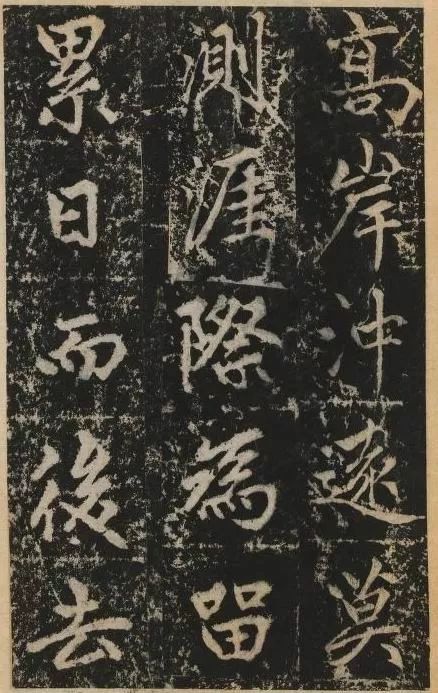 高岸沖遠莫
測涯際為
留
累日而後去